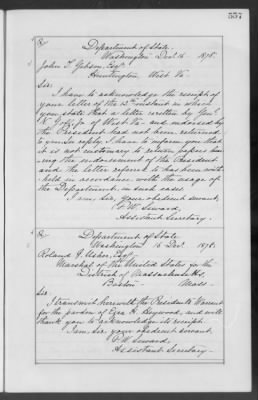 557
Department of State,
Washington Decr 16 1878.
John T. Gibson, Esqr
Huntington West Va
Sir:
I have to acknowledge the receipt of
your letter of the 13th instant in which
you state that a letter written by Genl
of West Va. and indorsed by
the President had not been returned
to you. In reply I have to inform you that
it is not customary to return papers hav-
ing the endorsement of the President
and the letter referred to has been with-
held in accordance with the usage of
the Department in such cases.
I am, Sir, your obedient servant,
F. W. Seward,
Assistant Secretary.
Department of State
Washington 16 Decr 1878.
Roland G. Usher, Esqr
Marshal of the United States for the
District of Massachusetts,
Boston - Mass -
Sir:
I transmit herewith the President's Warrant
for the pardon of Ezra H. Heywood, and will
thank you to acknowledge its receipt.
I am, sir, your obedient servant,
F. W. Seward,
Assistant Secretary -